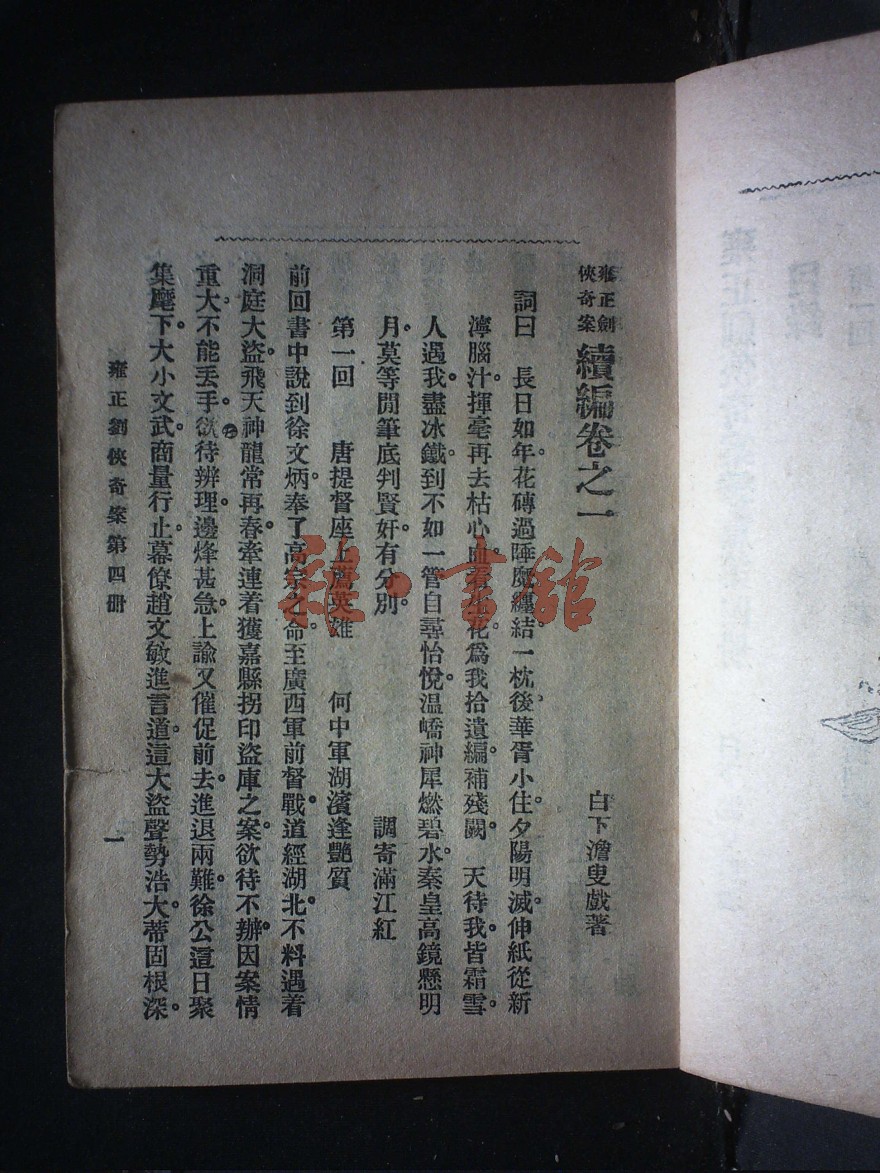 雍正劍
俠奇案
續編卷之一
白下澹叟戲著
詞曰　長日如年花磚過睡魔纏結。一枕後華胥小住。夕陽明滅。伸紙從新
濘腦汁。揮毫再去枯心血。看生花爲我拾遺編。補殘闕　天待我皆霜雪。
人遇我。盡冰鐵。到不如一管自尋怡悅。溫嶠神犀燃碧水。秦皇高鏡懸明
月。莫等閒筆底判賢奸。有分別。
調寄滿江紅
第一回　唐提督座上薦英雄　何中軍湖濱逢艷質
前回書中說到徐文炳。奉了高宗之命。至廣西軍前督戰。道經湖北。不料遇着
洞庭大盜。飛天神龍常再春。牽連着獲嘉縣拐印盜庫之案。欲待不辦。因案情
重大。不能丢手。欲待辨理。邊烽甚急。上諭又催促前去。進退兩難。徐公這日聚
集麾下。大小文武。商量行止。幕僚趙文敏進言道。這大盜聲勢浩大。蒂固根深。
雍正劍俠奇案第四册
一
雜·書館